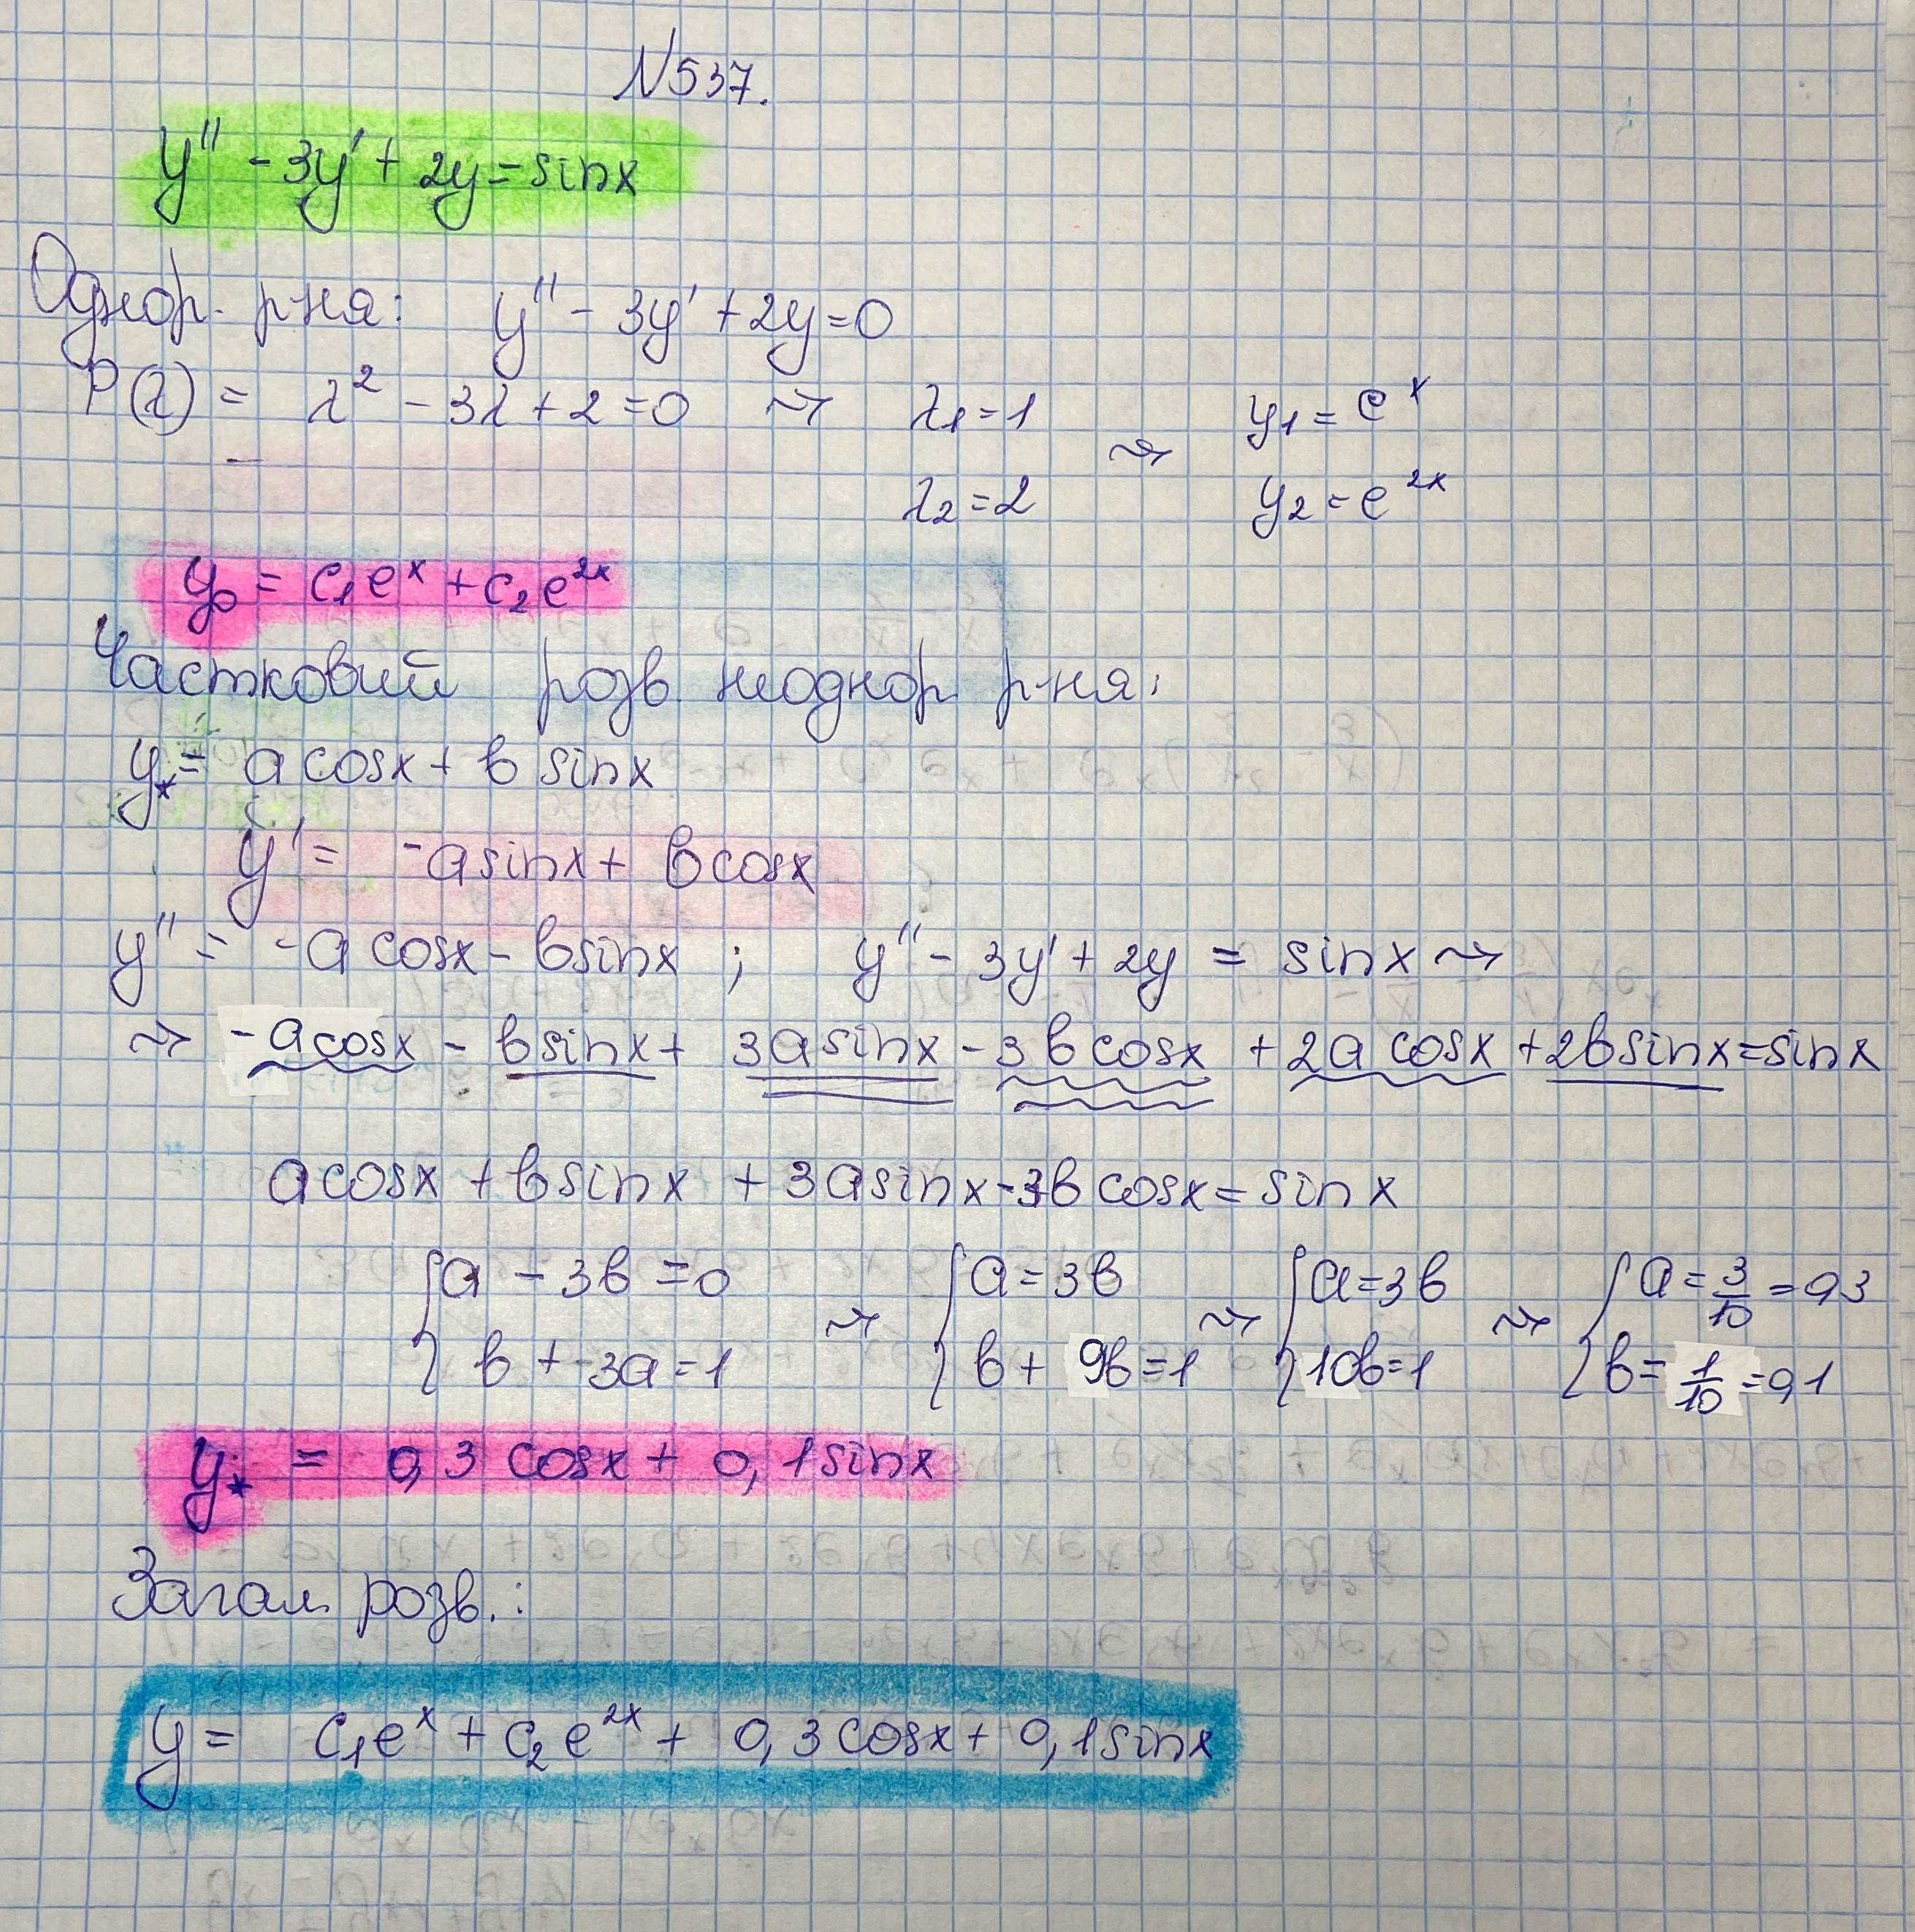 N537.
y'' - 3y' + 2y = sinx
Однор. р-ня: y'' - 3y' + 2y = 0
P(λ) = λ² - 3λ + 2 = 0 ⇝ λ₁ = 1 ⇝ y₁ = eˣ
λ₂ = 2 y₂ = e²ˣ
y₀ = c₁eˣ + c₂e²ˣ
Частковий розв. неоднор р-ня:
y* = a cosx + b sinx
y' = -a sinx + b cosx
y'' = -a cosx - b sinx ; y'' - 3y' + 2y = sinx ⇝
⇝ -a cosx - b sinx + 3a sinx - 3b cosx + 2a cosx + 2b sinx = sinx
a cosx + b sinx + 3a sinx - 3b cosx = sinx
{ a - 3b = 0 ⇝ { a = 3b ⇝ { a = 3b ⇝ { a = 3/10 = 0,3
b + 3a = 1 b + 9b = 1 10b = 1 b = 1/10 = 0,1
y* = 0,3 cosx + 0,1 sinx
Загал. розв.:
y = c₁eˣ + c₂e²ˣ + 0,3 cosx + 0,1 sinx